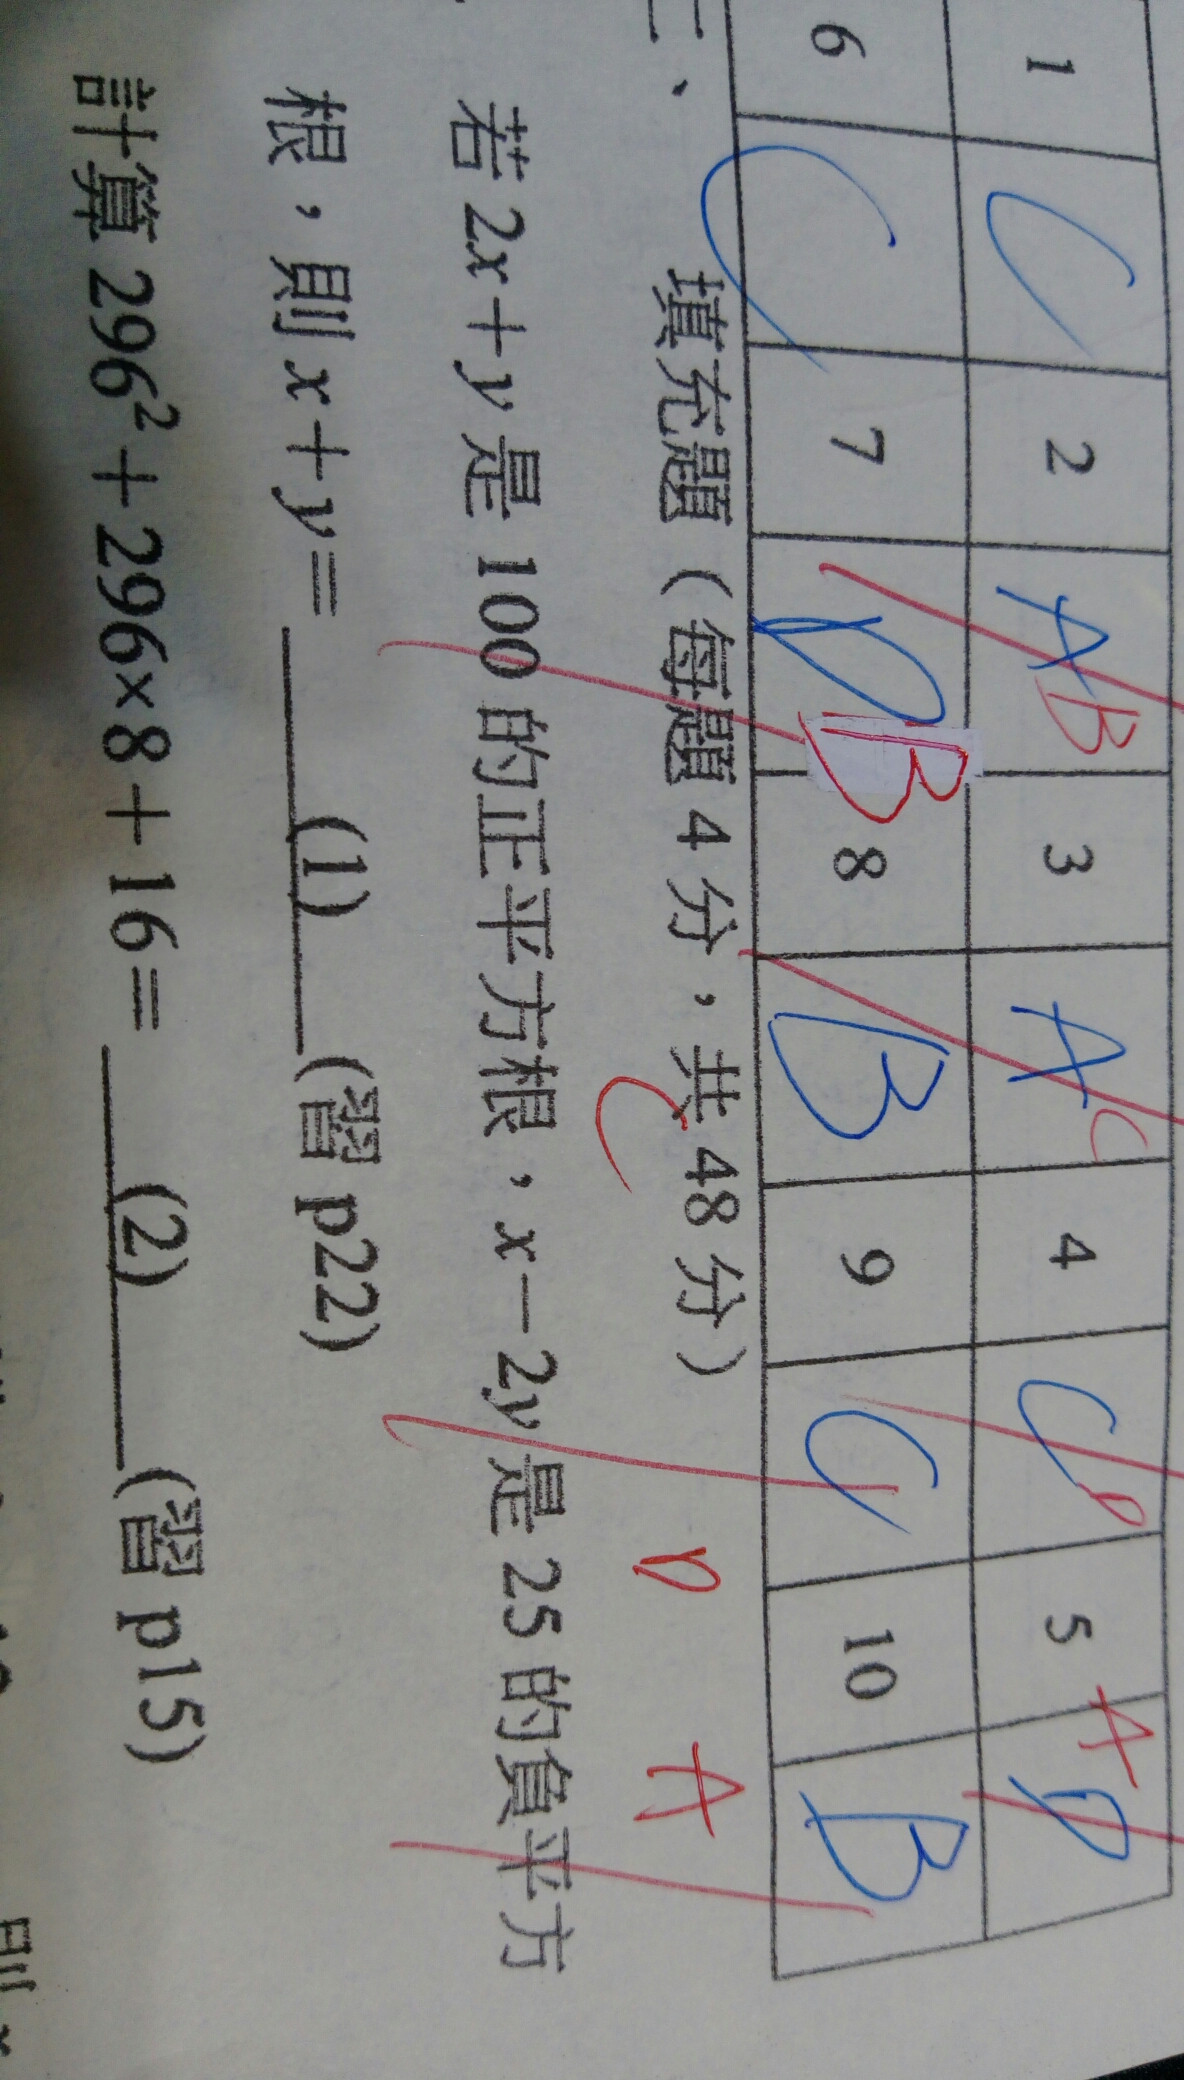 1 C 2 A B 3 A C 4 C D 5 A D
6 C 7 D B 8 B 9 C 10 B
二、 填充題（每題 4 分，共 48 分）
C D A
若 2x＋y 是 100 的正平方根，x－2y 是 25 的負平方
根，則 x＋y＝ (1) (習 p22)
計算 296²＋296×8＋16＝ (2) (習 p15)